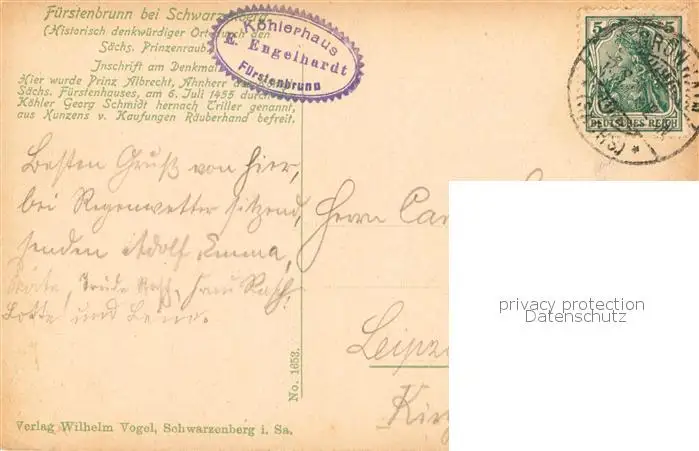 Fürstenbrunn bei Schwarzenberg.
(Historisch denkwürdiger Ort durch den
Sächs. Prinzenraub
Inschrift am Denkmal
Hier wurde Prinz Albrecht, Ahnherr des
Sächs. Fürstenhauses, am 6. Juli 1455 durch
Köhler Georg Schmidt hernach Triller genannt,
aus Kunzens v. Kaufungen Räuberhand befreit.
Köhlerhaus
E. Engelhardt
Fürstenbrunn
5 5
DEUTSCHES REICH
Besten Gruß von hier,
bei Regenwetter sitzend,
senden Adolf, Emma,
Lotte und
Herrn
Leipz
No. 1653.
Verlag Wilhelm Vogel, Schwarzenberg i. Sa.
privacy protection
Datenschutz